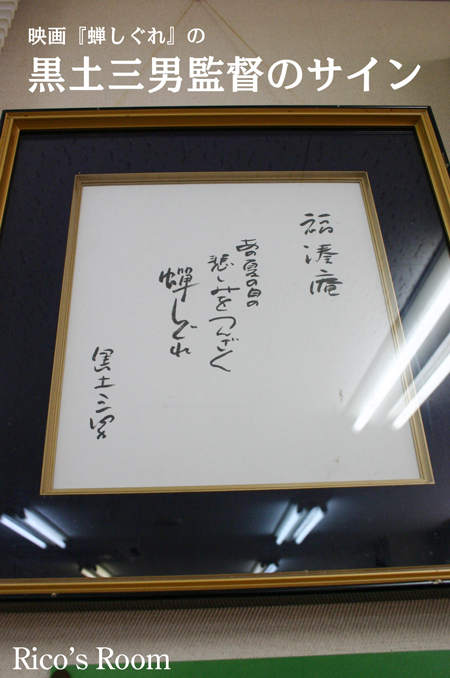 映画『蝉しぐれ』の
黒土三男監督のサイン
福湊庵
あの夏の日の
悲しみをつんざく
蝉しぐれ
黒土三男
Rico's Room